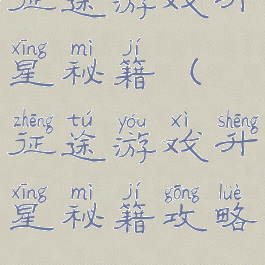 征途游戏升
xīng mì jí
星秘籍（
zhēng tú yóu xì shēng
征途游戏升
xīng mì jí gōng lüè
星秘籍攻略